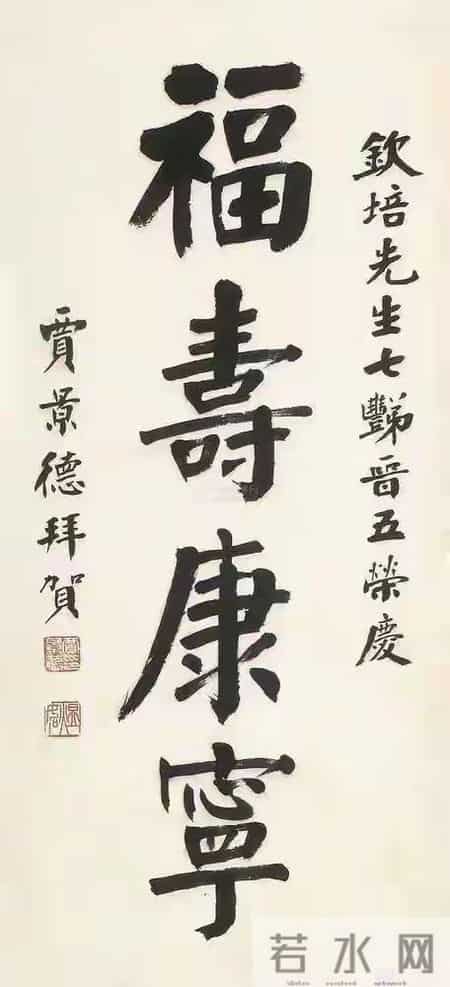 欽培先生七豒晉五榮慶
福壽康寧
賈景德拜賀
若水网